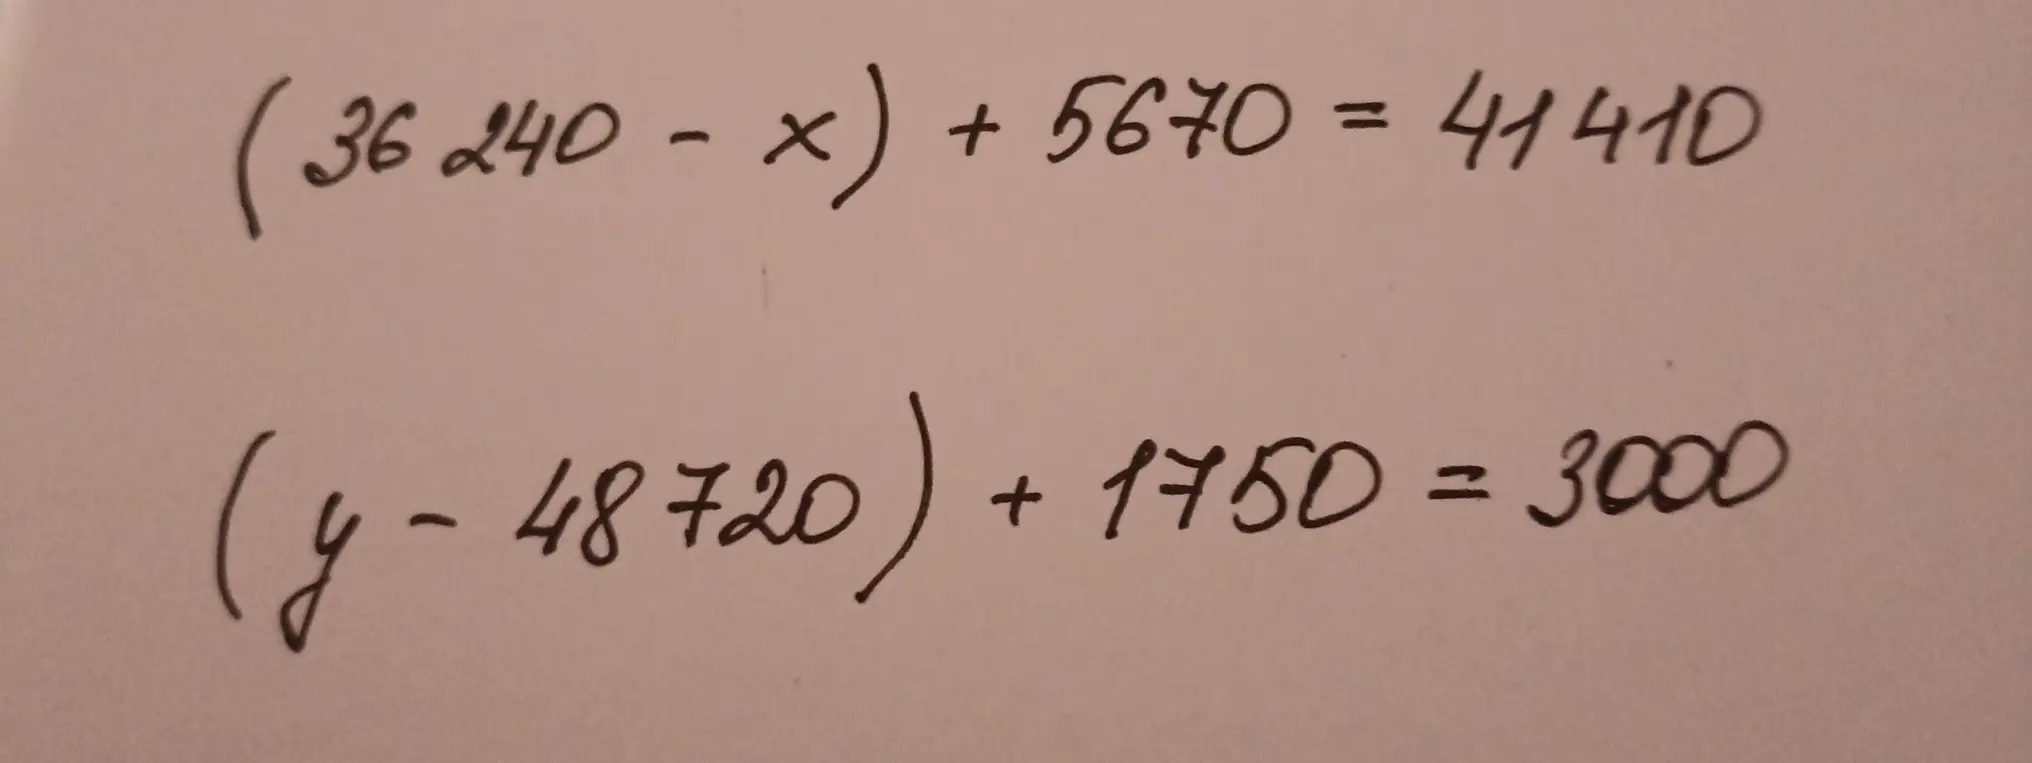 (36 240 - x) + 5670 = 41 410
(y - 48 720) + 1750 = 3000